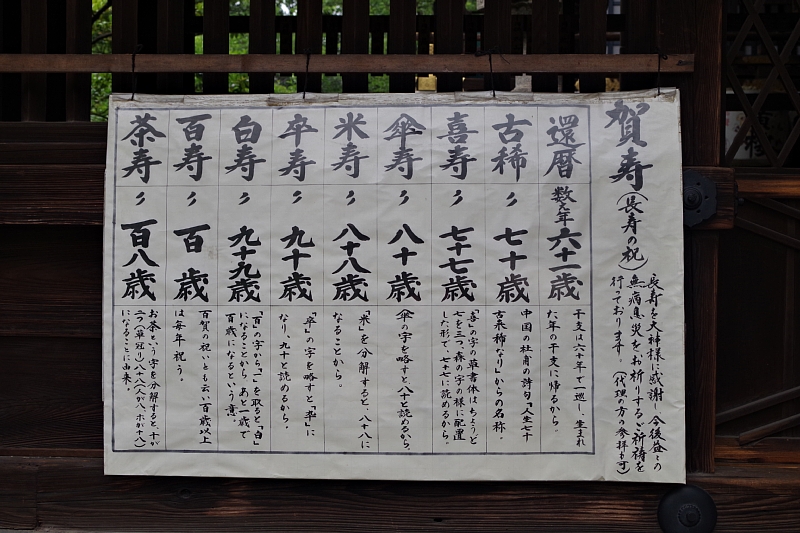 賀寿(長寿の祝)
長寿を大神様に感謝し今後益々の
無病息災をお祈りするご祈祷を
行っております。(代理の方の参拝も可)
還暦
数え年六十一歳
干支は六十年で一巡し、生まれ
た年の干支に帰るから。
古稀
〃
七十歳
中国の杜甫の詩句「人生七十
古来稀なり」からの名称。
喜寿
〃
七十七歳
「喜」の字の草書体はちょうど
七を三つ、森の字の様に配置
した形で、七十七に読めるから。
傘寿
〃
八十歳
傘の字を略すと八十と読めるから。
米寿
〃
八十八歳
「米」を分解すると、八十八に
なることから。
卒寿
〃
九十歳
「卒」の字を略すと「卆」に
なり、九十と読めるから。
白寿
〃
九十九歳
「百」の字から「一」を取ると「白」
になることから あと一歳で
百歳になるという意。
百寿
〃
百歳
百賀の祝いとも云い百歳以上
は毎年祝う。
茶寿
〃
百八歳
お茶という字を分解すると、十が
二つ(草冠り)八十八(人が八、ホが十八)
になることに由来。